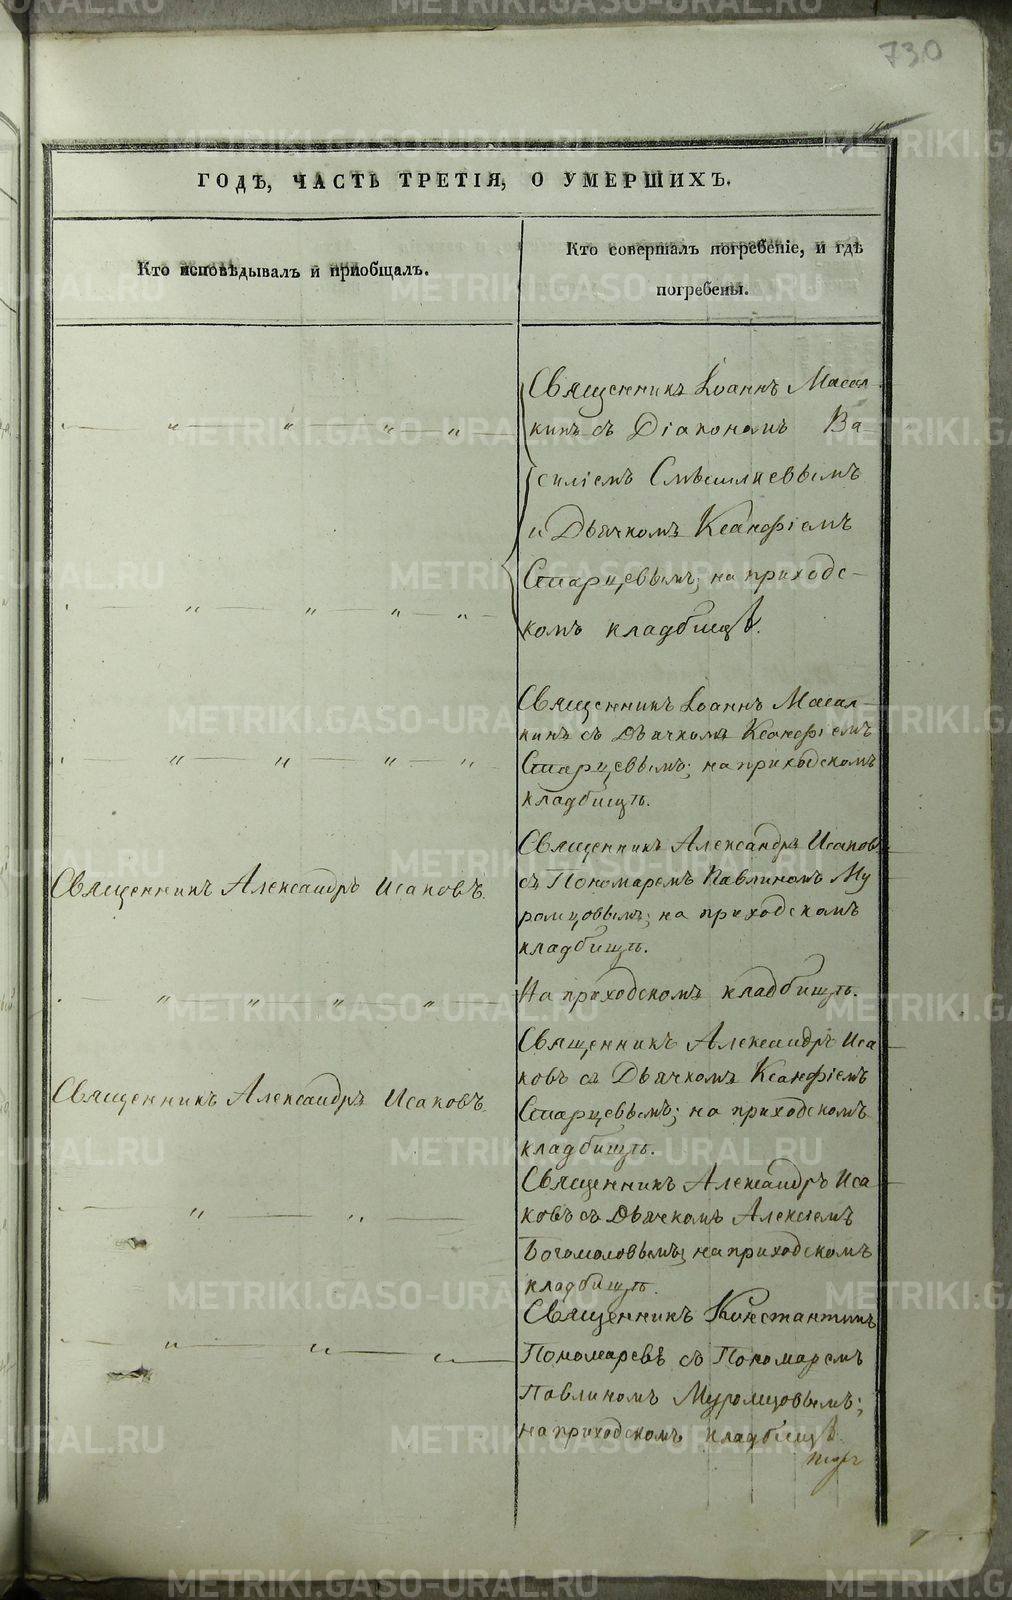 730
ГОДѢ, ЧАСТЬ ТРЕТІЯ, О УМЕРШИХЪ.
Кто исповѣдывалъ и пріобщалъ.
Кто совершалъ погребеніе, и гдѣ
погребены.
Священникъ Іоаннъ Масал
кинъ съ Діакономъ Ва-
силіемъ Смышляевымъ
и Дьячкомъ Ксанфіемъ
Старцевымъ; на приходс-
комъ кладбищѣ.
Священникъ Іоаннъ Масал-
кинъ съ Дьячкомъ Ксанфіемъ
Старцевымъ; на приходскомъ
кладбищѣ.
Священникъ Александръ Исаковъ
Священникъ Александръ Исаковъ
съ Пономаремъ Павлиномъ Му
ромцовымъ; на приходскомъ
кладбищѣ.
На приходскомъ кладбищѣ.
Священникъ Александръ Исаковъ
Священникъ Александръ Иса
ковъ съ Дьячкомъ Ксанфіемъ
Старцевымъ; на приходскомъ
кладбищѣ.
Священникъ Александръ Иса
ковъ съ Дьячкомъ Алексіемъ
Богомоловымъ; на приходскомъ
кладбищѣ.
Священникъ Константинъ
Пономаревъ съ Пономаремъ
Павлиномъ Муромцовымъ;
на приходскомъ кладбищѣ.
METRIKI.GASO-URAL.RU